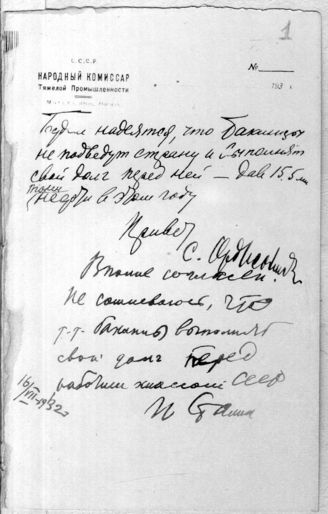 1
С.С.С.Р.
НАРОДНЫЙ КОМИССАР
Тяжелой Промышленности
№
193 г.
Будем надеятся, что бакинцы
не подведут страну и выполнят
свой долг перед ней — дав 15.5 мил
тонн
нефти в этом году
Привет
С. Орджоникидзе
Вполне согласен.
Не сомневаюсь, что
т-т. бакинцы выполнят
свой долг перед
рабочим классом СССР
И Сталин
16/VII-1932 г